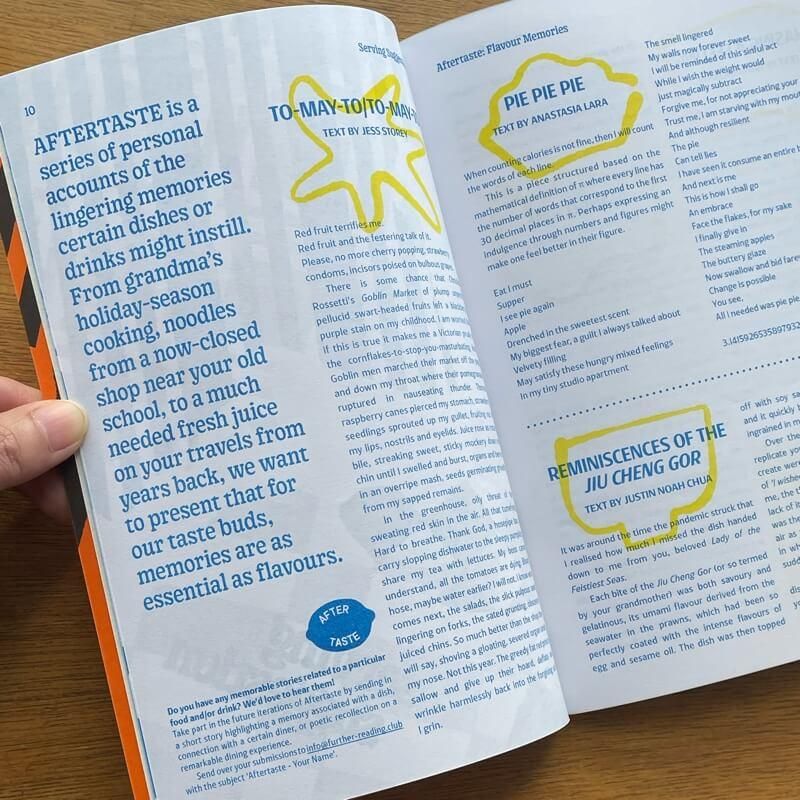 10
AFTERTASTE is a
series of personal
accounts of the
lingering memories
certain dishes or
drinks might instill.
From grandma's
holiday-season
cooking, noodles
from a now-closed
shop near your old
school, to a much
needed fresh juice
on your travels from
years back, we want
to present that for
our taste buds,
memories are as
essential as flavours.
AFTER
TASTE
Do you have any memorable stories related to a particular
food and/or drink? We'd love to hear them!
Take part in the future iterations of Aftertaste by sending in
a short story highlighting a memory associated with a dish,
connection with a certain diner, or poetic recollection on a
remarkable dining experience.
Send over your submissions to info@further-reading.club
with the subject 'Aftertaste - Your Name'.
Serving
TO-MAY-TO/TO-MAY-
TEXT BY JESS STOREY
Red fruit terrifies me.
Red fruit and the festering talk of it.
Please, no more cherry popping, strawberry
condoms, incisors poised on bulbous
There is some chance that
Rossetti's Goblin Market of plump
pellucid swart-headed fruits left a
purple stain on my childhood. I am
If this is true it makes me a Victorian
the cornflakes-to-stop-you-masturbating
Goblin men marched their market off the
and down my throat where their
ruptured in nauseating thunder.
raspberry canes pierced my stomach,
seedlings sprouted up my gullet, fruiting
my lips, nostrils and eyelids. Juice met
bile, streaking sweet, sticky mockery
chin until I swelled and burst, organs and
in an overripe mash, seeds germinating
from my sapped remains.
In the greenhouse, oily threat of
sweating red skin in the air. All that
Hard to breathe. Thank God, a hosepipe
carry slopping dishwater to the sleepy
share my tea with lettuces. My boss
understand, all the tomatoes are dying.
hose, maybe water earlier? I will not. I know
comes next, the salads, the slick pulpous
lingering on forks, the sated grunting,
juiced chins. So much better than the
will say, shoving a gloating, severed
my nose. Not this year. The greedy
sallow and give up their hoard,
wrinkle harmlessly back into the forgiving
I grin.
Aftertaste: Flavour Memories
PIE PIE PIE
TEXT BY ANASTASIA LARA
When counting calories is not fine, then I will count
the words of each line.
This is a piece structured based on the
mathematical definition of π where every line has
the number of words that correspond to the first
30 decimal places in π. Perhaps expressing an
indulgence through numbers and figures might
make one feel better in their figure.
Eat I must
Supper
I see pie again
Apple
Drenched in the sweetest scent
My biggest fear, a guilt I always talked about
Velvety filling
May satisfy these hungry mixed feelings
In my tiny studio apartment
The smell lingered
My walls now forever sweet
I will be reminded of this sinful act
While I wish the weight would
just magically subtract
Forgive me, for not appreciating your
Trust me, I am starving with my
And although resilient
The pie
Can tell lies
I have seen it consume an entire
And next is me
This is how I shall go
An embrace
Face the flakes, for my sake
I finally give in
The steaming apples
The buttery glaze
Now swallow and bid
Change is possible
You see,
All I needed was pie pie
3.141592653589793
REMINISCENCES OF THE
JIU CHENG GOR
TEXT BY JUSTIN NOAH CHUA
It was around the time the pandemic struck that
I realised how much I missed the dish handed
down to me from you, beloved Lady of the
Feistiest Seas.
Each bite of the Jiu Cheng Gor (or so termed
by your grandmother) was both savoury and
gelatinous, its umami flavour derived from the
seawater in the prawns, which had been so
perfectly coated with the intense flavours of
egg and sesame oil. The dish was then topped
off with soy
and it quickly
ingrained in
Over the
replicate
create
of 'I wishe
me, the
lack of
was the
air as
in